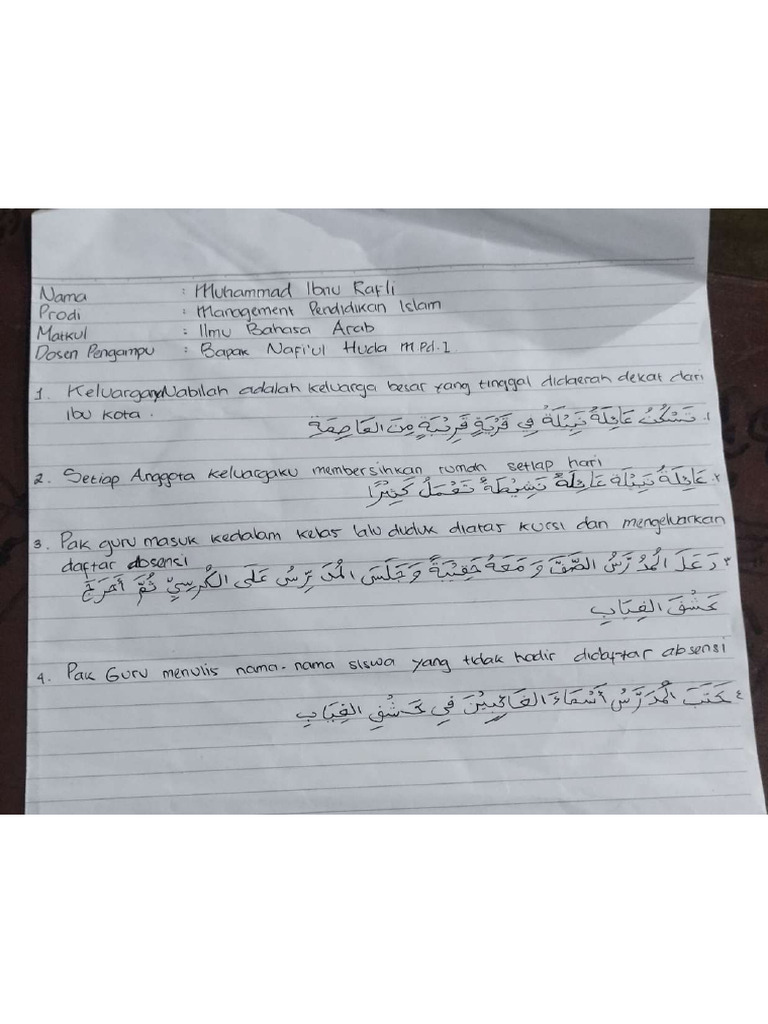 Nama : Muhammad Ibnu Rafli
Prodi : Management Pendidikan Islam
Matkul : Ilmu Bahasa Arab
Dosen Pengampu : Bapak Nafi'ul Huda M.Pd.I
1. Keluarganya Nabilah adalah keluarga besar yang tinggal didaerah dekat dari
ibu kota.
١. تَسْكُنُ عَائِلَةُ نَبِيْلَةُ فِي قَرْيَةٍ قَرِيْبَةٍ مِنَ العَاصِمَةِ
2. Setiap Anggota keluargaku membersihkan rumah setiap hari
٢. عَائِلَةُ نَبِيْلَة عَائِلَةٌ نَشِيْطَةٌ تَعْمَلُ كَثِيْرًا
3. Pak guru masuk kedalam kelas lalu duduk diatas kursi dan mengeluarkan
daftar absensi
٣. دَخَلَ المُدَرِّسُ الصَّفَّ وَ مَعَهُ حَقِيْبَةٌ وَجَلَسَ المُدَرِّسُ عَلَى الكُرْسِيِّ ثُمَّ أَخْرَجَ
كَشْفَ الغِيَابِ
4. Pak Guru menulis nama-nama siswa yang tidak hadir didaftar absensi
٤. كَتَبَ المُدَرِّسُ أَسْمَاءَ الغَائِبِيْنَ فِي كَشْفِ الغِيَابِ